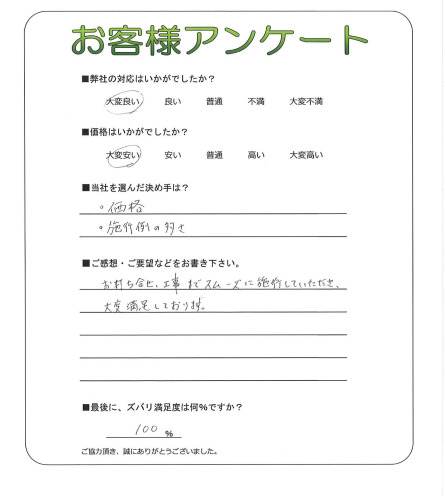 お客様アンケート
■弊社の対応はいかがでしたか？
大変良い 良い 普通 不満 大変不満
■価格はいかがでしたか？
大変安い 安い 普通 高い 大変高い
■当社を選んだ決め手は？
。価格
。施行例の多さ
■ご感想・ご要望などをお書き下さい。
お打ち合せ、工事までスムーズに施行していただき、
大変満足しております。
■最後に、ズバリ満足度は何％ですか？
100 %
ご協力頂き、誠にありがとうございました。